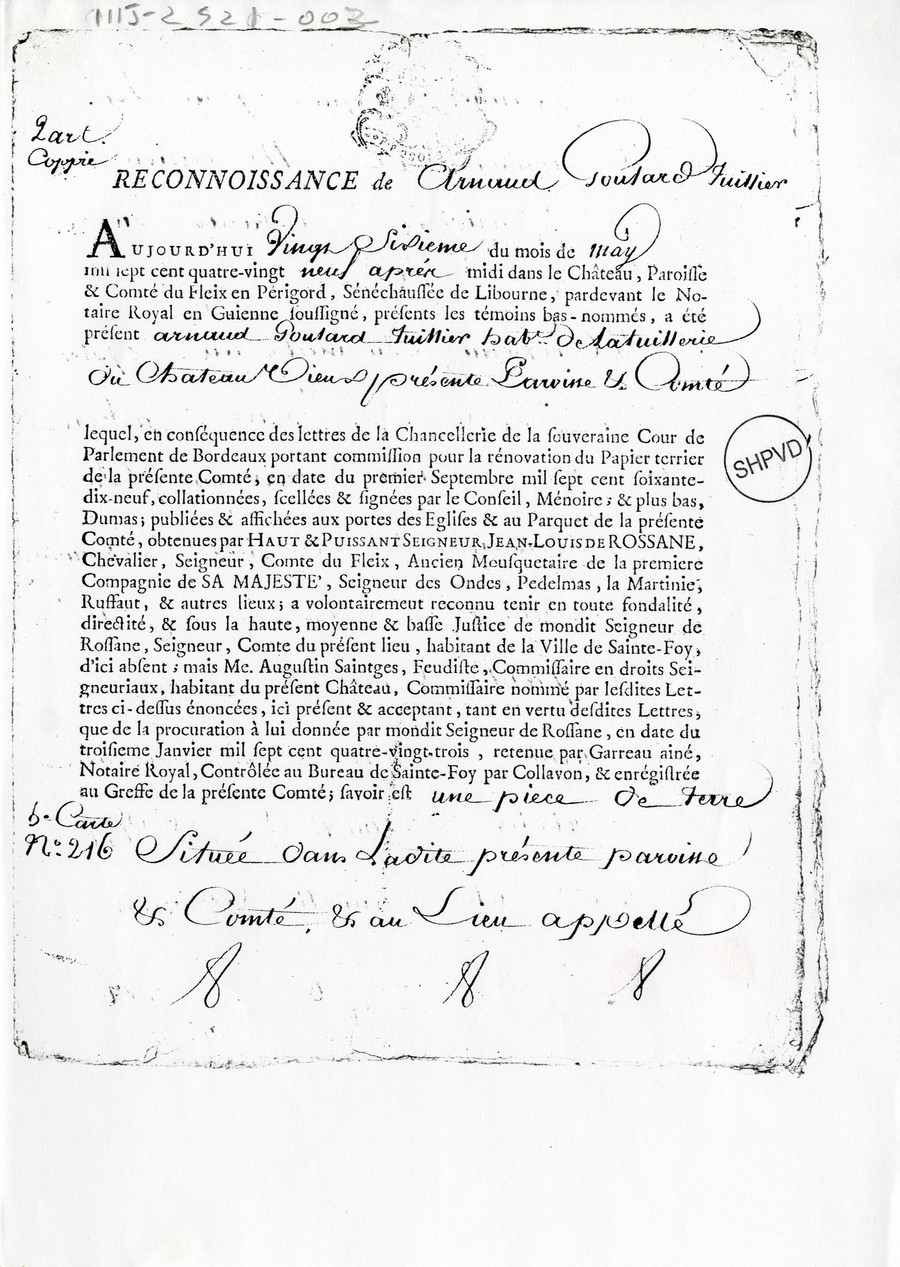 111J-2 S21-003
2 art.
Coppie
RECONNOISSANCE de Arnaud Poutard Tuillier
AUJOURD'HUI Vingt Sixieme du mois de may
mil sept cent quatre-vingt neuf après midi dans le Château, Paroisse
& Comté du Fleix en Périgord, Sénéchaussée de Libourne, pardevant le No-
taire Royal en Guienne soussigné, présents les témoins bas-nommés, a été
présent arnaud Poutard Tuillier habt. de latuillerie
du Chateau Vieux présente Paroisse & Comté
lequel, en conséquence des lettres de la Chancellerie de la souveraine Cour de
Parlement de Bordeaux portant commission pour la rénovation du Papier terrier
de la présente Comté, en date du premier Septembre mil sept cent soixante-
dix-neuf, collationnées, scellées & signées par le Conseil, Ménoire; & plus bas,
Dumas; publiées & affichées aux portes des Eglises & au Parquet de la présente
Comté, obtenues par HAUT & PUISSANT SEIGNEUR, JEAN-LOUIS DE ROSSANE,
Chevalier, Seigneur, Comte du Fleix, Ancien Mousquetaire de la premiere
Compagnie de SA MAJESTE', Seigneur des Ondes, Pedelmas, la Martinie,
Ruffaut, & autres lieux; a volontairement reconnu tenir en toute fondalité,
directité, & sous la haute, moyenne & basse Justice de mondit Seigneur de
Rossane, Seigneur, Comte du présent lieu, habitant de la Ville de Sainte-Foy,
d'ici absent; mais Me. Augustin Saintges, Feudiste, Commissaire en droits Sei-
gneuriaux, habitant du présent Château, Commissaire nommé par lesdites Let-
tres ci-dessus énoncées, ici présent & acceptant, tant en vertu desdites Lettres,
que de la procuration à lui donnée par mondit Seigneur de Rossane, en date du
troisieme Janvier mil sept cent quatre-vingt-trois, retenue par Garreau ainé,
Notaire Royal, Contrôlée au Bureau de Sainte-Foy par Collavon, & enrégistrée
au Greffe de la présente Comté; savoir est une piece de terre
6e. Carte
No. 216 Située dans Ladite présente paroisse
& Comté, & au Lieu appellé
SHPVD